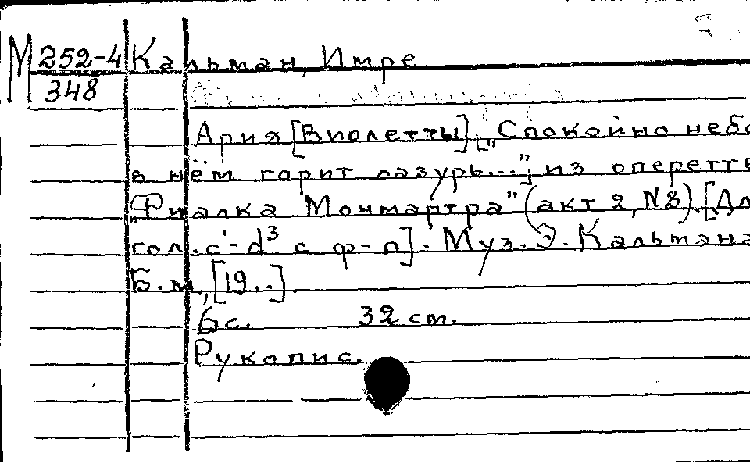 М 252-4 Кальман, Имре
348
Ария [Виолетты] „Спокойно небо
в нём горит лазурь..."; из оперетты
„Фиалка Монмартра" (акт 2, №8). [Для
гол. c'-d³ с ф-п]. Муз. Э. Кальмана
Б.м., [19..].
6с. 32 см.
Рукопис.